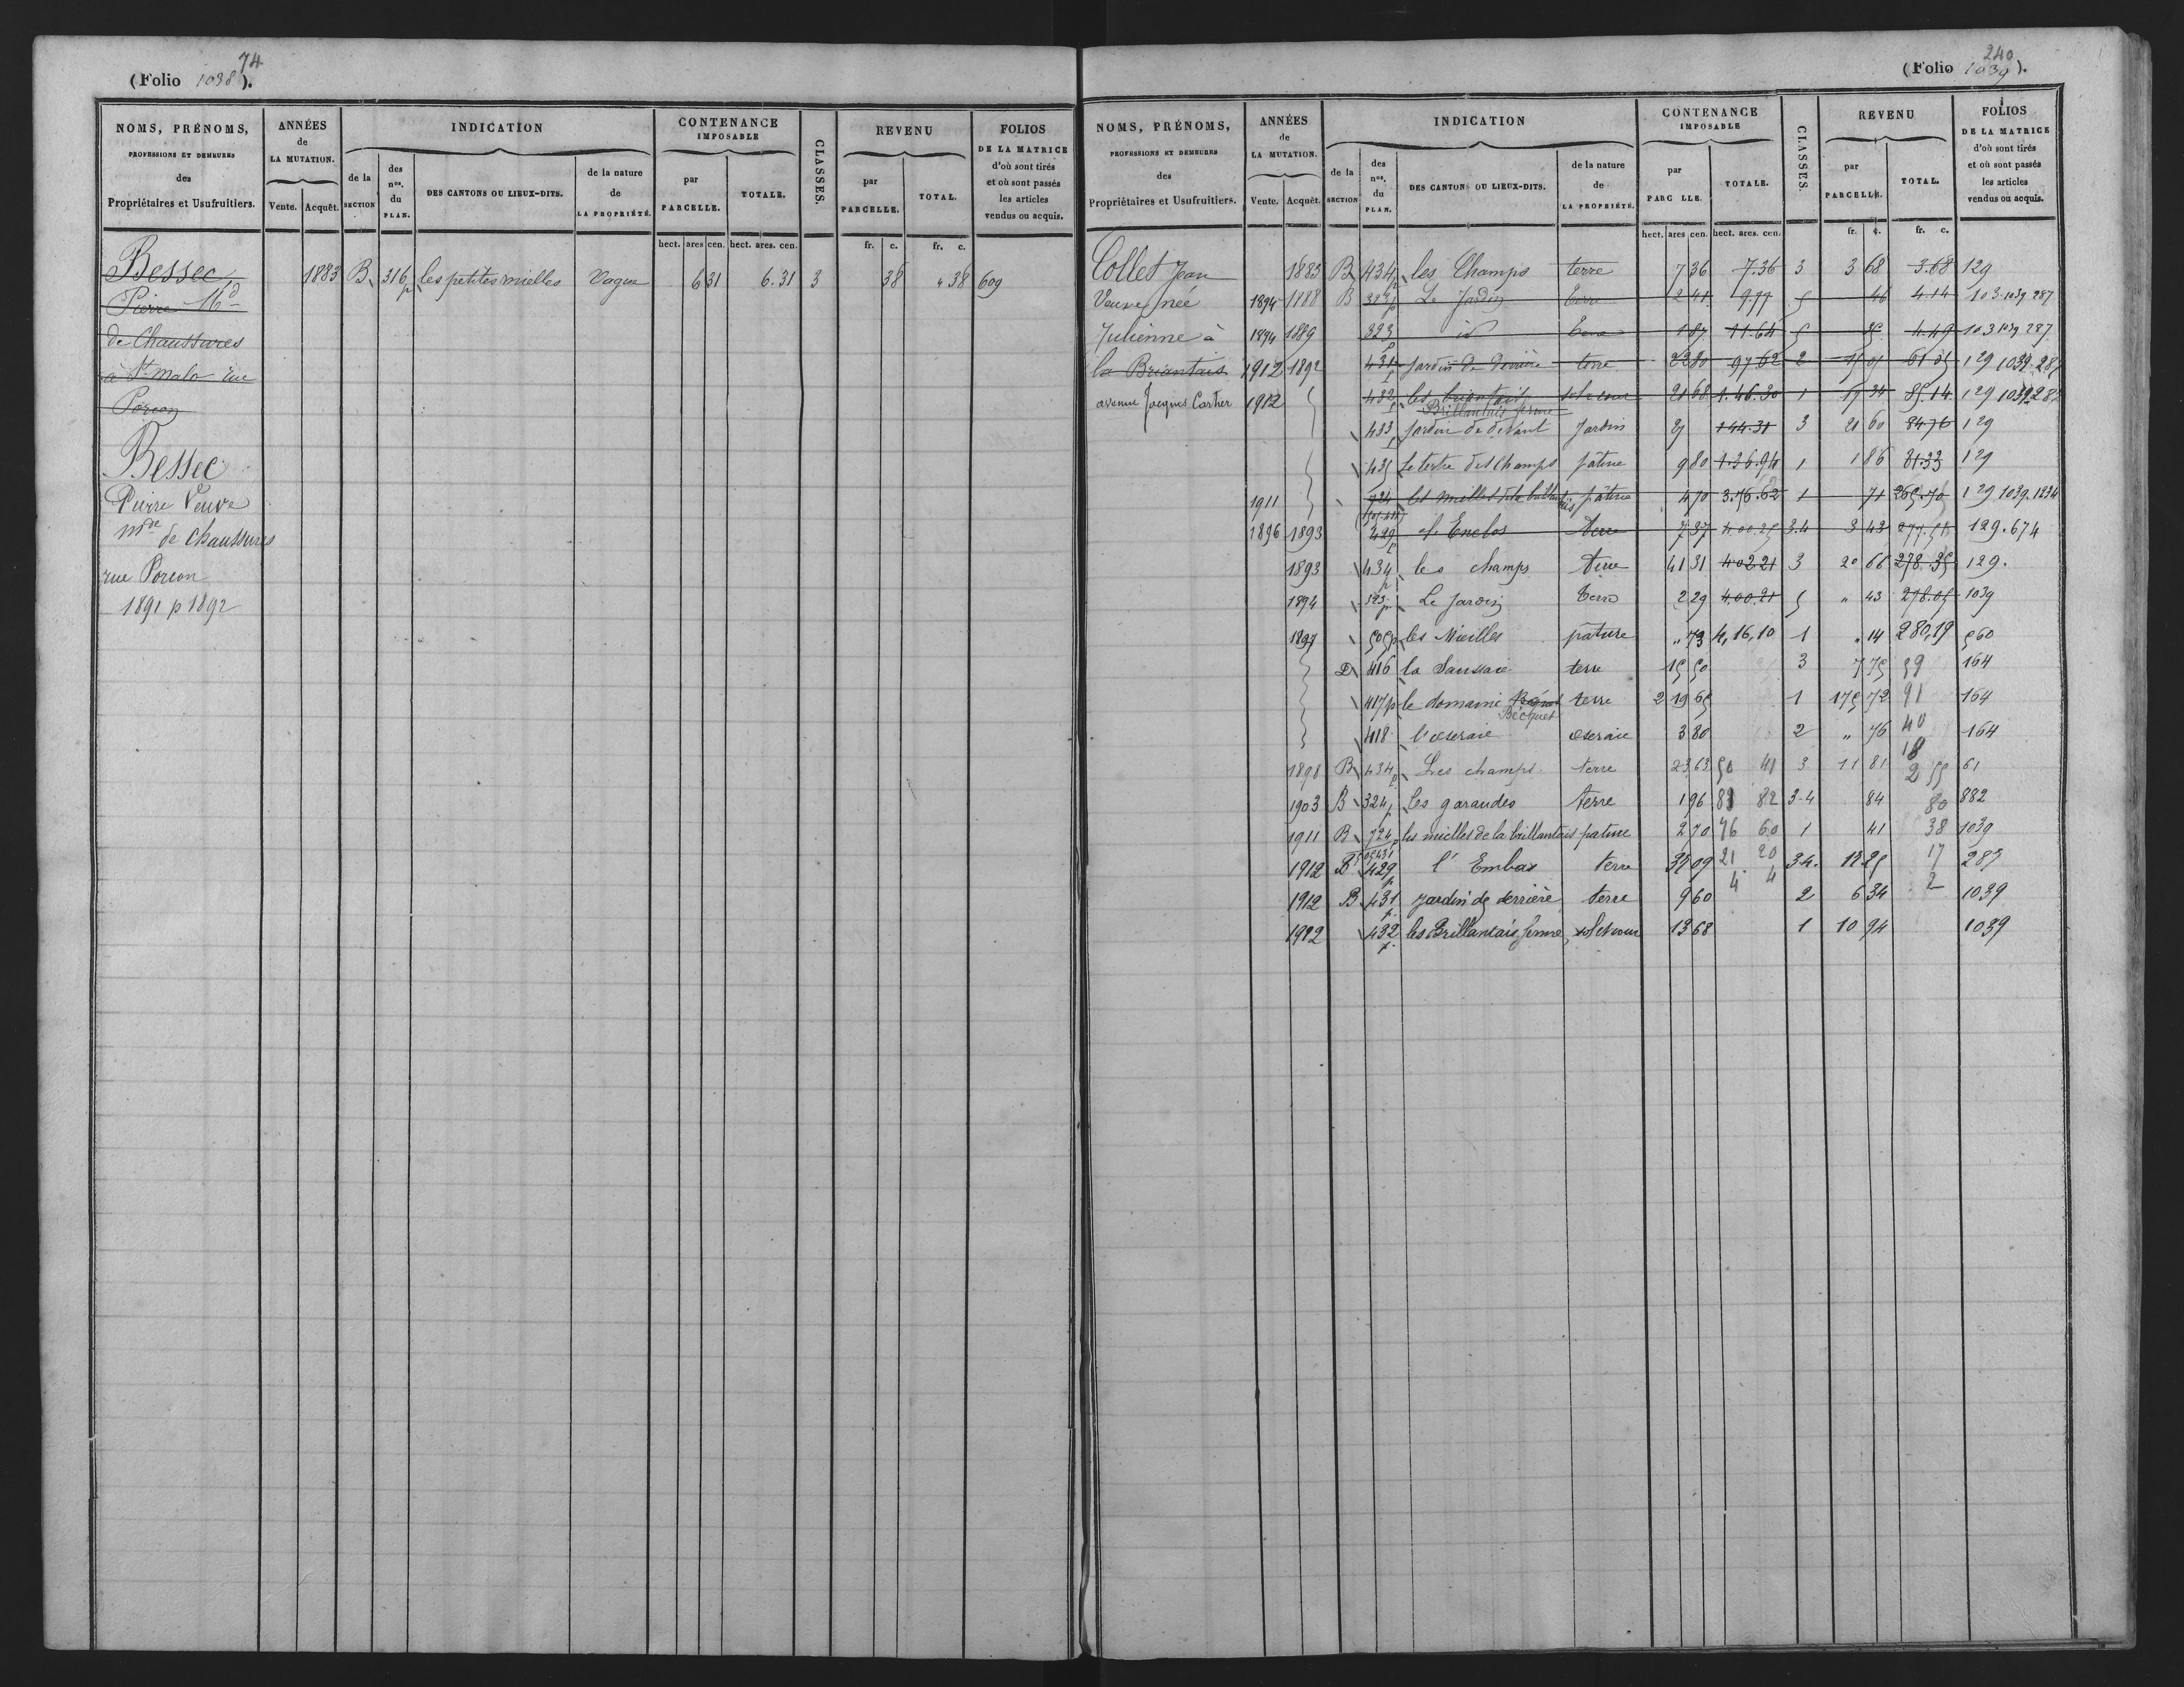 74
(Folio 1038).
NOMS, PRÉNOMS, PROFESSIONS ET DEMEURES des Propriétaires et Usufruitiers.
ANNÉES de LA MUTATION. Vente. Acquêt.
INDICATION de la SECTION des nos. du PLAN. DES CANTONS OU LIEUX-DITS. de la nature de LA PROPRIÉTÉ.
CONTENANCE IMPOSABLE par PARCELLE. TOTALE.
CLASSES.
REVENU par PARCELLE. TOTAL.
FOLIOS DE LA MATRICE d'où sont tirés et où sont passés les articles vendus ou acquis.
hect. ares cen. hect. ares. cen. fr. c. fr. c.
Bessec, 1883 B 316 p les petites mielles Vague 6 31 6.31 3 38 " 38 609
Pierre Md
de Chaussures
à St malo rue
Porcon
Bessec
Pierre Veuve
mde de Chaussures
rue Porcon
1891 p 1892
240
(Folio 1039).
NOMS, PRÉNOMS, PROFESSIONS ET DEMEURES des Propriétaires et Usufruitiers.
ANNÉES de LA MUTATION. Vente. Acquêt.
INDICATION de la SECTION des nos. du PLAN. DES CANTONS OU LIEUX-DITS. de la nature de LA PROPRIÉTÉ.
CONTENANCE IMPOSABLE par PARC LLE. TOTALE.
CLASSES.
REVENU par PARCELLE. TOTAL.
FOLIOS DE LA MATRICE d'où sont tirés et où sont passés les articles vendus ou acquis.
hect. ares cen. hect. ares. cen. fr. c. fr. c.
Collet Jean 1883 B 434 p les Champs terre 7 36 7.36 3 3 68 3.68 129
Veuve née 1894 1888 B Le Jardin terre 2 41 9.77 5 46 4.14 103.1039 287
Julienne à 1894 1889 323 p id terre 1 87 11.64 5 35 4.49 103 1039 287
la Briantais 1912 1892 431 p jardin de derrière terre 97 62 2 129 1039.287
avenue Jacques Cartier 1912 432 p les briantais sol et cour 21 68 1.46.30 1 17 34 85.14 129 1039 287
Brillantais ferme
433 p jardin de devant Jardin 144.31 3 21 60 84.76 129
435 Le tertre des Champs pâture 9 80 1.36.94 1 1 86 81.33 129
1911 724 les mielles de la brillantais pâture 4 70 3.76.62 1 71 265.70 129 1039.1234
1896 1893 429 p l'Enclos terre 7 37 4.00.25 3.4 3 43 129.674
1893 434 p les champs terre 41 31 402.21 3 20 66 278.35 129.
1894 323 p Le Jardin terre 2 29 4.00.21 5 " 43 278.05 1039
1897 505 p les Mielles pâture " 73 4,16,10 1 " 14 280,19 560
D 416 la Saussaie terre 15 50 3 7 75 59 164
417 p le domaine Bécquet terre 2 19 65 1 175 72 91 164
418 l'oseraie oseraie 3 80 2 " 76 40 164
18
1898 B 434 p Les champs terre 23 63 50 41 3 11 81 2 55 61
1903 B 324 p Les garandes terre 1 96 89 82 3-4 84 80 882
1911 B 724 p les mielles de la brillantais pature 2 70 76 60 1 41 38 1039
1912 B 429 p l'Embas terre 21 20 34. 17 287
1912 B 431 p. Jardin de derrière terre 9 60 4 4 2 6 34 2 1039
1912 432 p. les Brillantais ferme sol et cour 13 68 1 10 94 1039